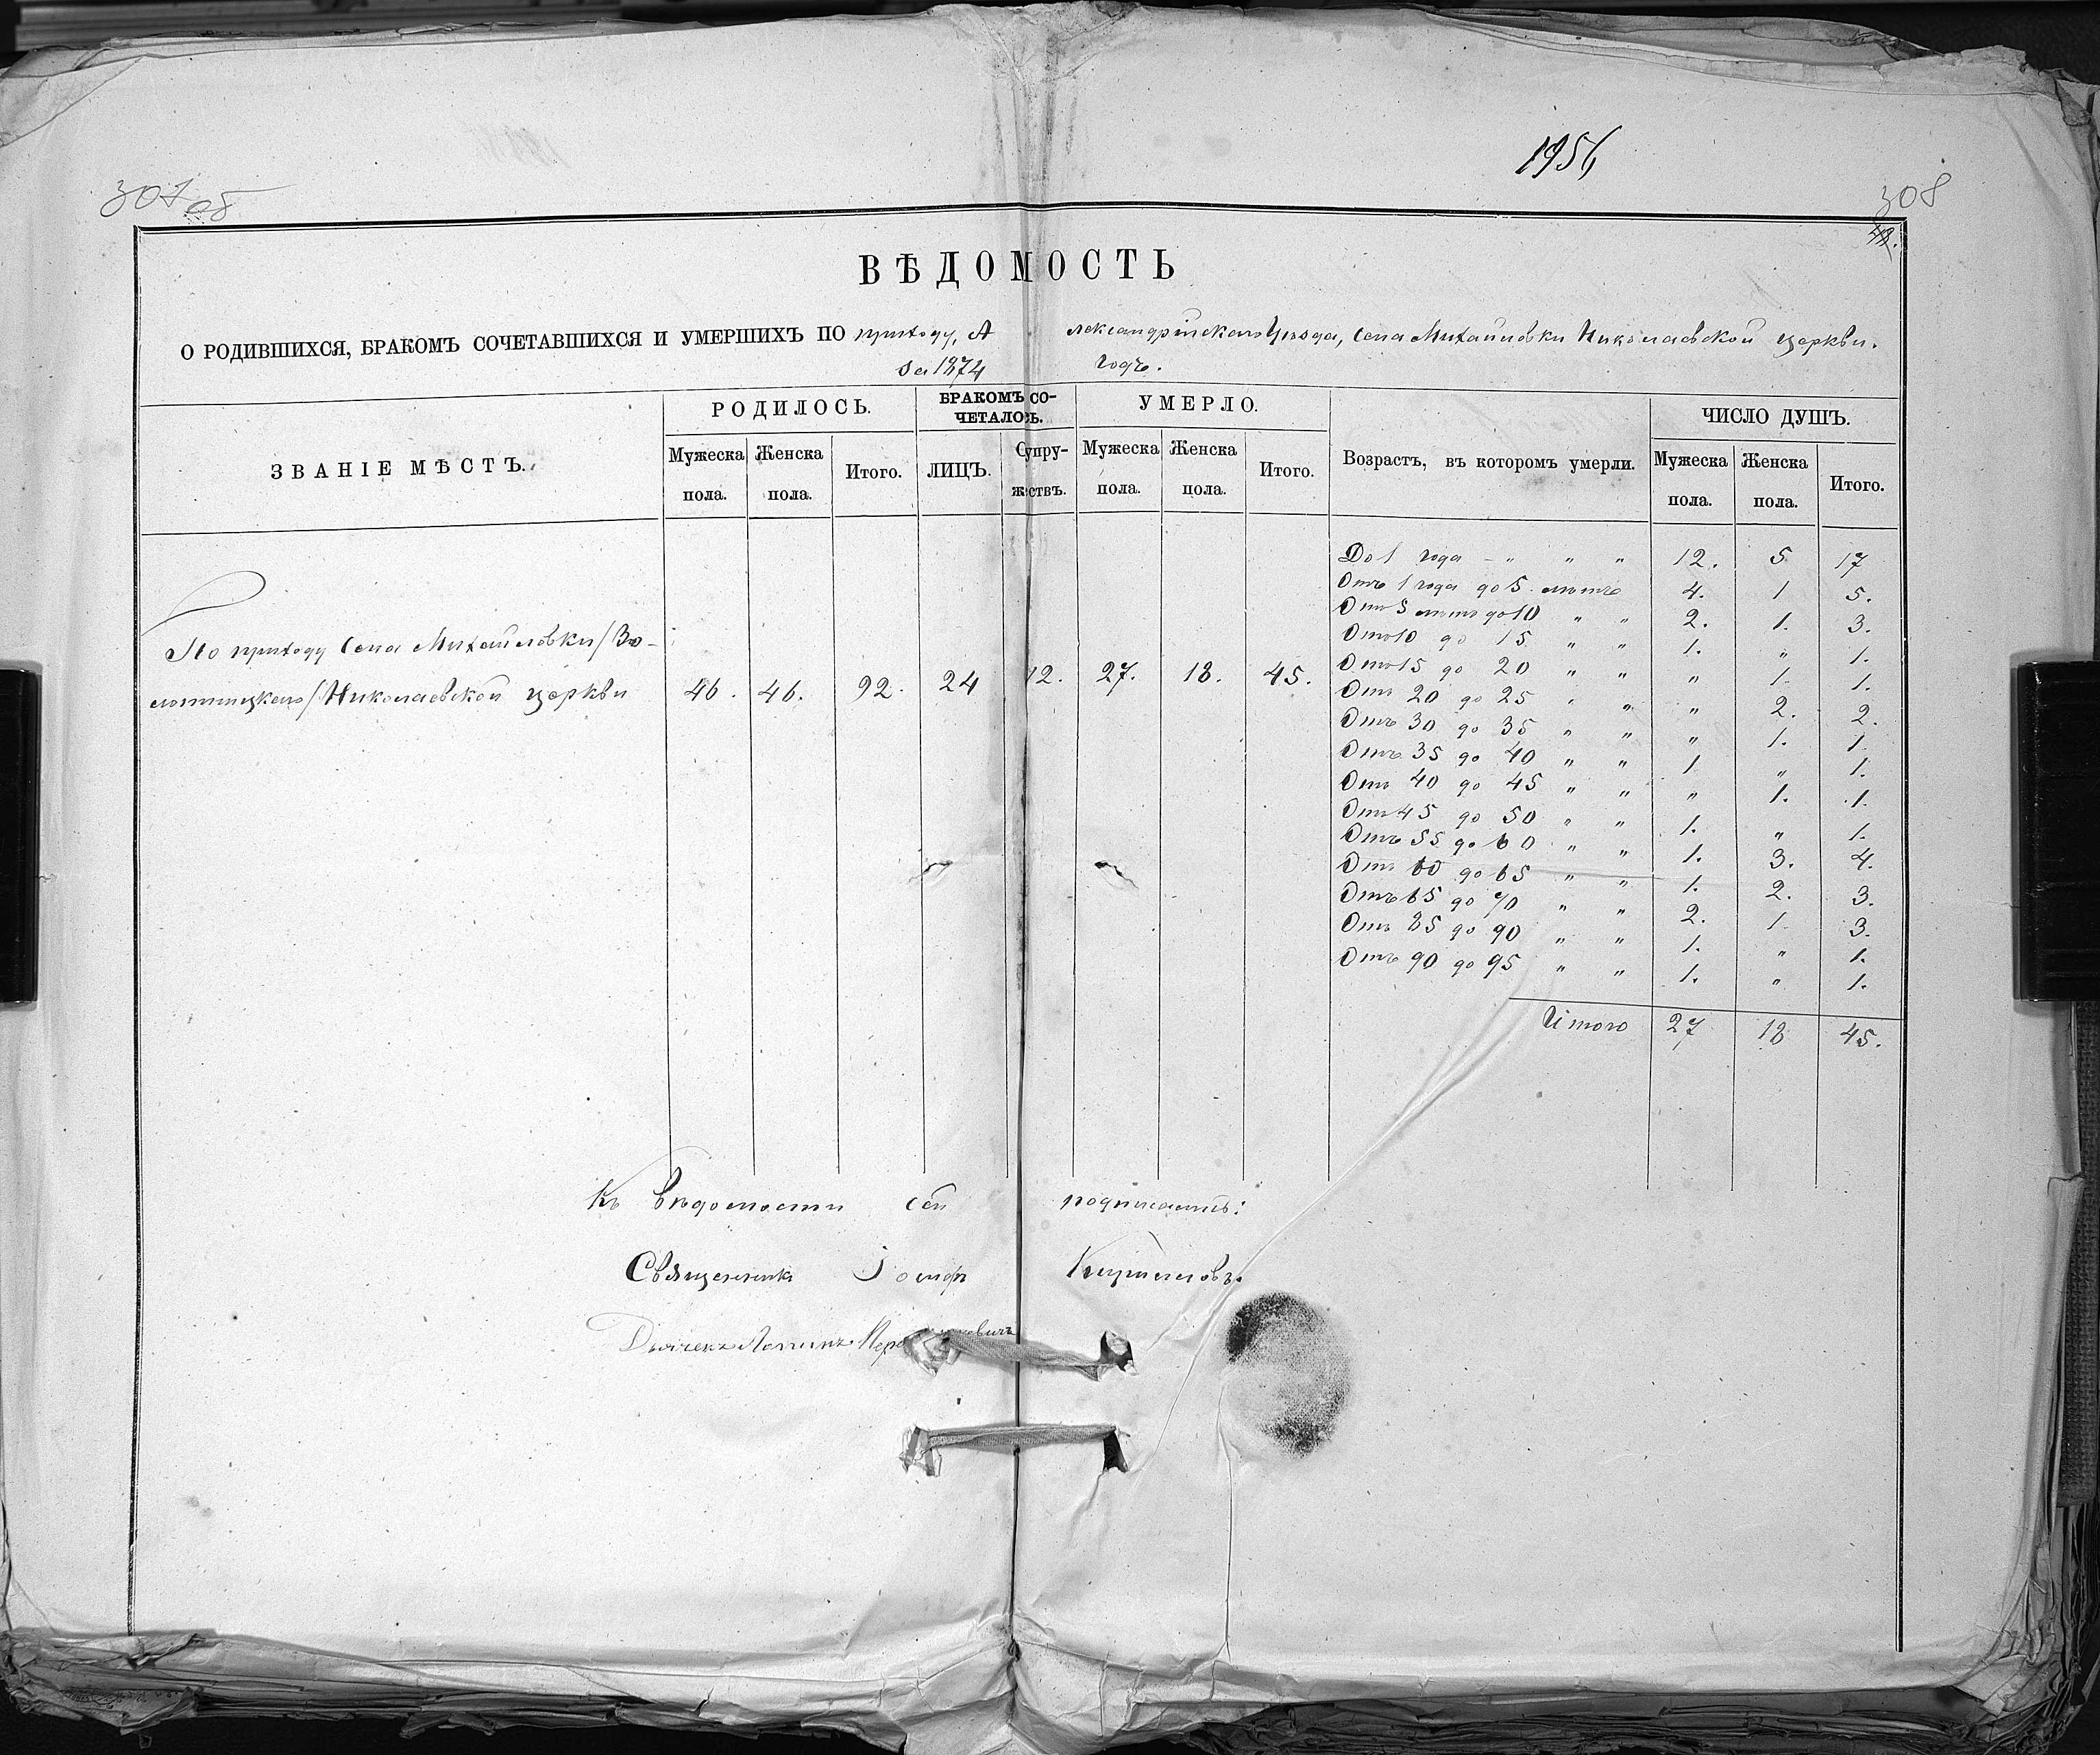 1956
307 об
308
ВѢДОМОСТЬ
О РОДИВШИХСЯ, БРАКОМЪ СОЧЕТАВШИХСЯ И УМЕРШИХЪ ПО приходу, Александрійскаго Уѣзда, Села Михайловки Николаевской церкви.
за 1874 годъ.
ЗВАНІЕ МѢСТЪ. РОДИЛОСЬ. БРАКОМЪ СОЧЕТАЛОСЬ. УМЕРЛО. Возрастъ, въ которомъ умерли. ЧИСЛО ДУШЪ.
Мужеска пола. Женска пола. Итого. ЛИЦЪ. Супружествъ. Мужеска пола. Женска пола. Итого. Мужеска пола. Женска пола. Итого.
По приходу Села Михайловки /Зо-
лотницкаго/ Николаевской церкви 46. 46. 92. 24 12. 27. 18. 45.
До 1 года – „ „ „ 12. 5 17
Отъ 1 года до 5 лѣтъ 4. 1 5.
Отъ 5 лѣтъ до 10 „ „ 2. 1. 3.
Отъ 10 до 15 „ „ 1. „ 1.
Отъ 15 до 20 „ „ „ 1. 1.
Отъ 20 до 25 „ „ „ 2. 2.
Отъ 30 до 35 „ „ „ 1. 1.
Отъ 35 до 40 „ „ 1 „ 1.
Отъ 40 до 45 „ „ „ 1. 1.
Отъ 45 до 50 „ „ 1. „ 1.
Отъ 55 до 60 „ „ 1. 3. 4.
Отъ 60 до 65 „ „ 1. 2. 3.
Отъ 65 до 70 „ „ 2. 1. 3.
Отъ 85 до 90 „ „ 1. „ 1.
Отъ 90 до 95 „ „ 1. „ 1.
Итого 27 18 45.
Къ вѣдомости сей подписались:
Священникъ Іосифъ
Дьячекъ